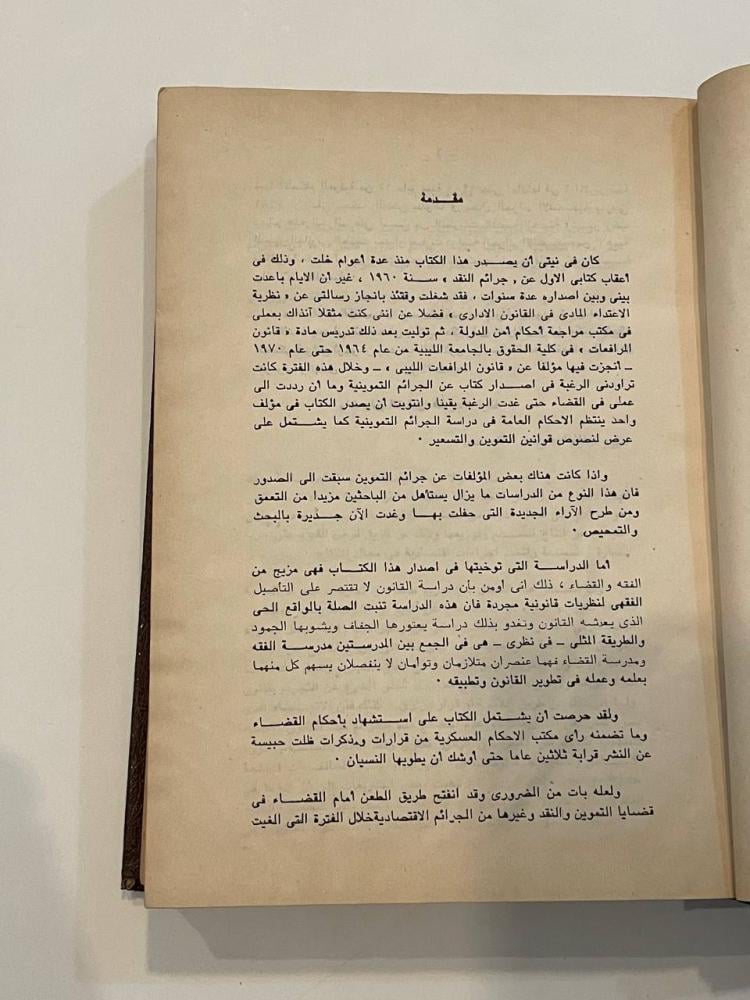 مقـدمة
كان فى نيتى أن يصـدر هذا الكتاب منذ عدة أعوام خلت ، وذلك فى
أعقاب كتابى الاول عن « جرائم النقد » سـنة ١٩٦٠ ، غير أن الايام باعدت
بينى وبين اصداره عدة سنوات ، فقد شغلت وقتئذ بانجاز رسالتى عن « نظرية
الاعتداء المادى فى القانون الادارى » فضلا عن اننى كنت مثقلا آنذاك بعملى
فى مكتب مراجعة أحكام أمن الدولة ، ثم توليت بعد ذلك تدريس مادة « قانون
المرافعات » فى كلية الحقوق بالجامعة الليبية من عام ١٩٦٤ حتى عام ١٩٧٠
ـ أنجزت فيها مؤلفا عن « قانون المرافعات الليبى » ـ وخلال هذه الفترة كانت
تراودنى الرغبة فى اصـدار كتاب عن الجرائم التموينية وما أن رددت الى
عملى فى القضاء حتى غدت الرغبة يقينا وانتويت أن يصدر الكتاب فى مؤلف
واحد ينتظم الاحكام العامة فى دراسة الجرائم التموينية كما يشـتمل على
عرض لنصوص قوانين التموين والتسعير ٠
واذا كانت هناك بعض المؤلفات عن جرائم التموين سبقت الى الصدور
فان هذا النوع من الدراسات ما يزال يستأهل من الباحثين مزيدا من التعمق
ومن طرح الآراء الجديدة التى حفلت بهـا وغدت الآن جـديرة بالبحث
والتمحيص ٠
أما الدراسـة التى توخيتها فى اصدار هذا الكتـاب فهى مزيج من
الفقه والقضاء ، ذلك انى أومن بأن دراسة القانون لا تقتصر على التأصيل
الفقهى لنظريات قانونية مجردة فان هذه الدراسة تنبت الصلة بالواقع الحى
الذى يعيشه القانون وتغدو بذلك دراسة يعتورها الجفاف ويشوبها الجمود
والطريقة المثلى ـ فى نظرى ـ هى فى الجمع بين المدرستين مدرسـة الفقه
ومدرسة القضاء فهما عنصران متلازمان وتوأمان لا ينفصلان يسهم كل منهما
بعلمه وعمله فى تطوير القانون وتطبيقه ٠
ولقد حرصت أن يشـتمل الكتاب على اسـتشهاد بأحكام القضـاء
وما تضمنه رأى مكتب الاحكام العسكرية من قرارات ومذكرات ظلت حبيسة
عن النشر قرابة ثلاثين عاما حتى أوشك أن يطويها النسيان ٠
ولعله بات من الضرورى وقد انفتح طريق الطعن أمام القضـاء فى
قضايا التموين والنقد وغيرها من الجرائم الاقتصادية خلال الفترة التى الغيت